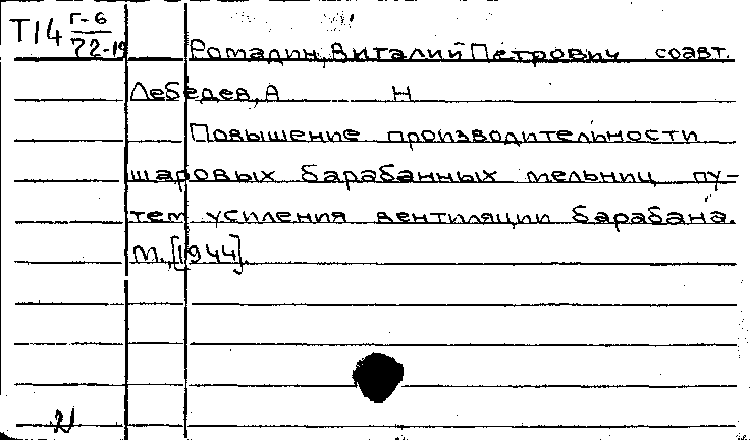 Т14 Г-6
72-19
Ромадин, Виталий Петрович соавт.
Лебедев, А Н
Повышение производительности
шаровых барабанных мельниц пу-
тем усиления вентиляции барабана.
М., [1944].